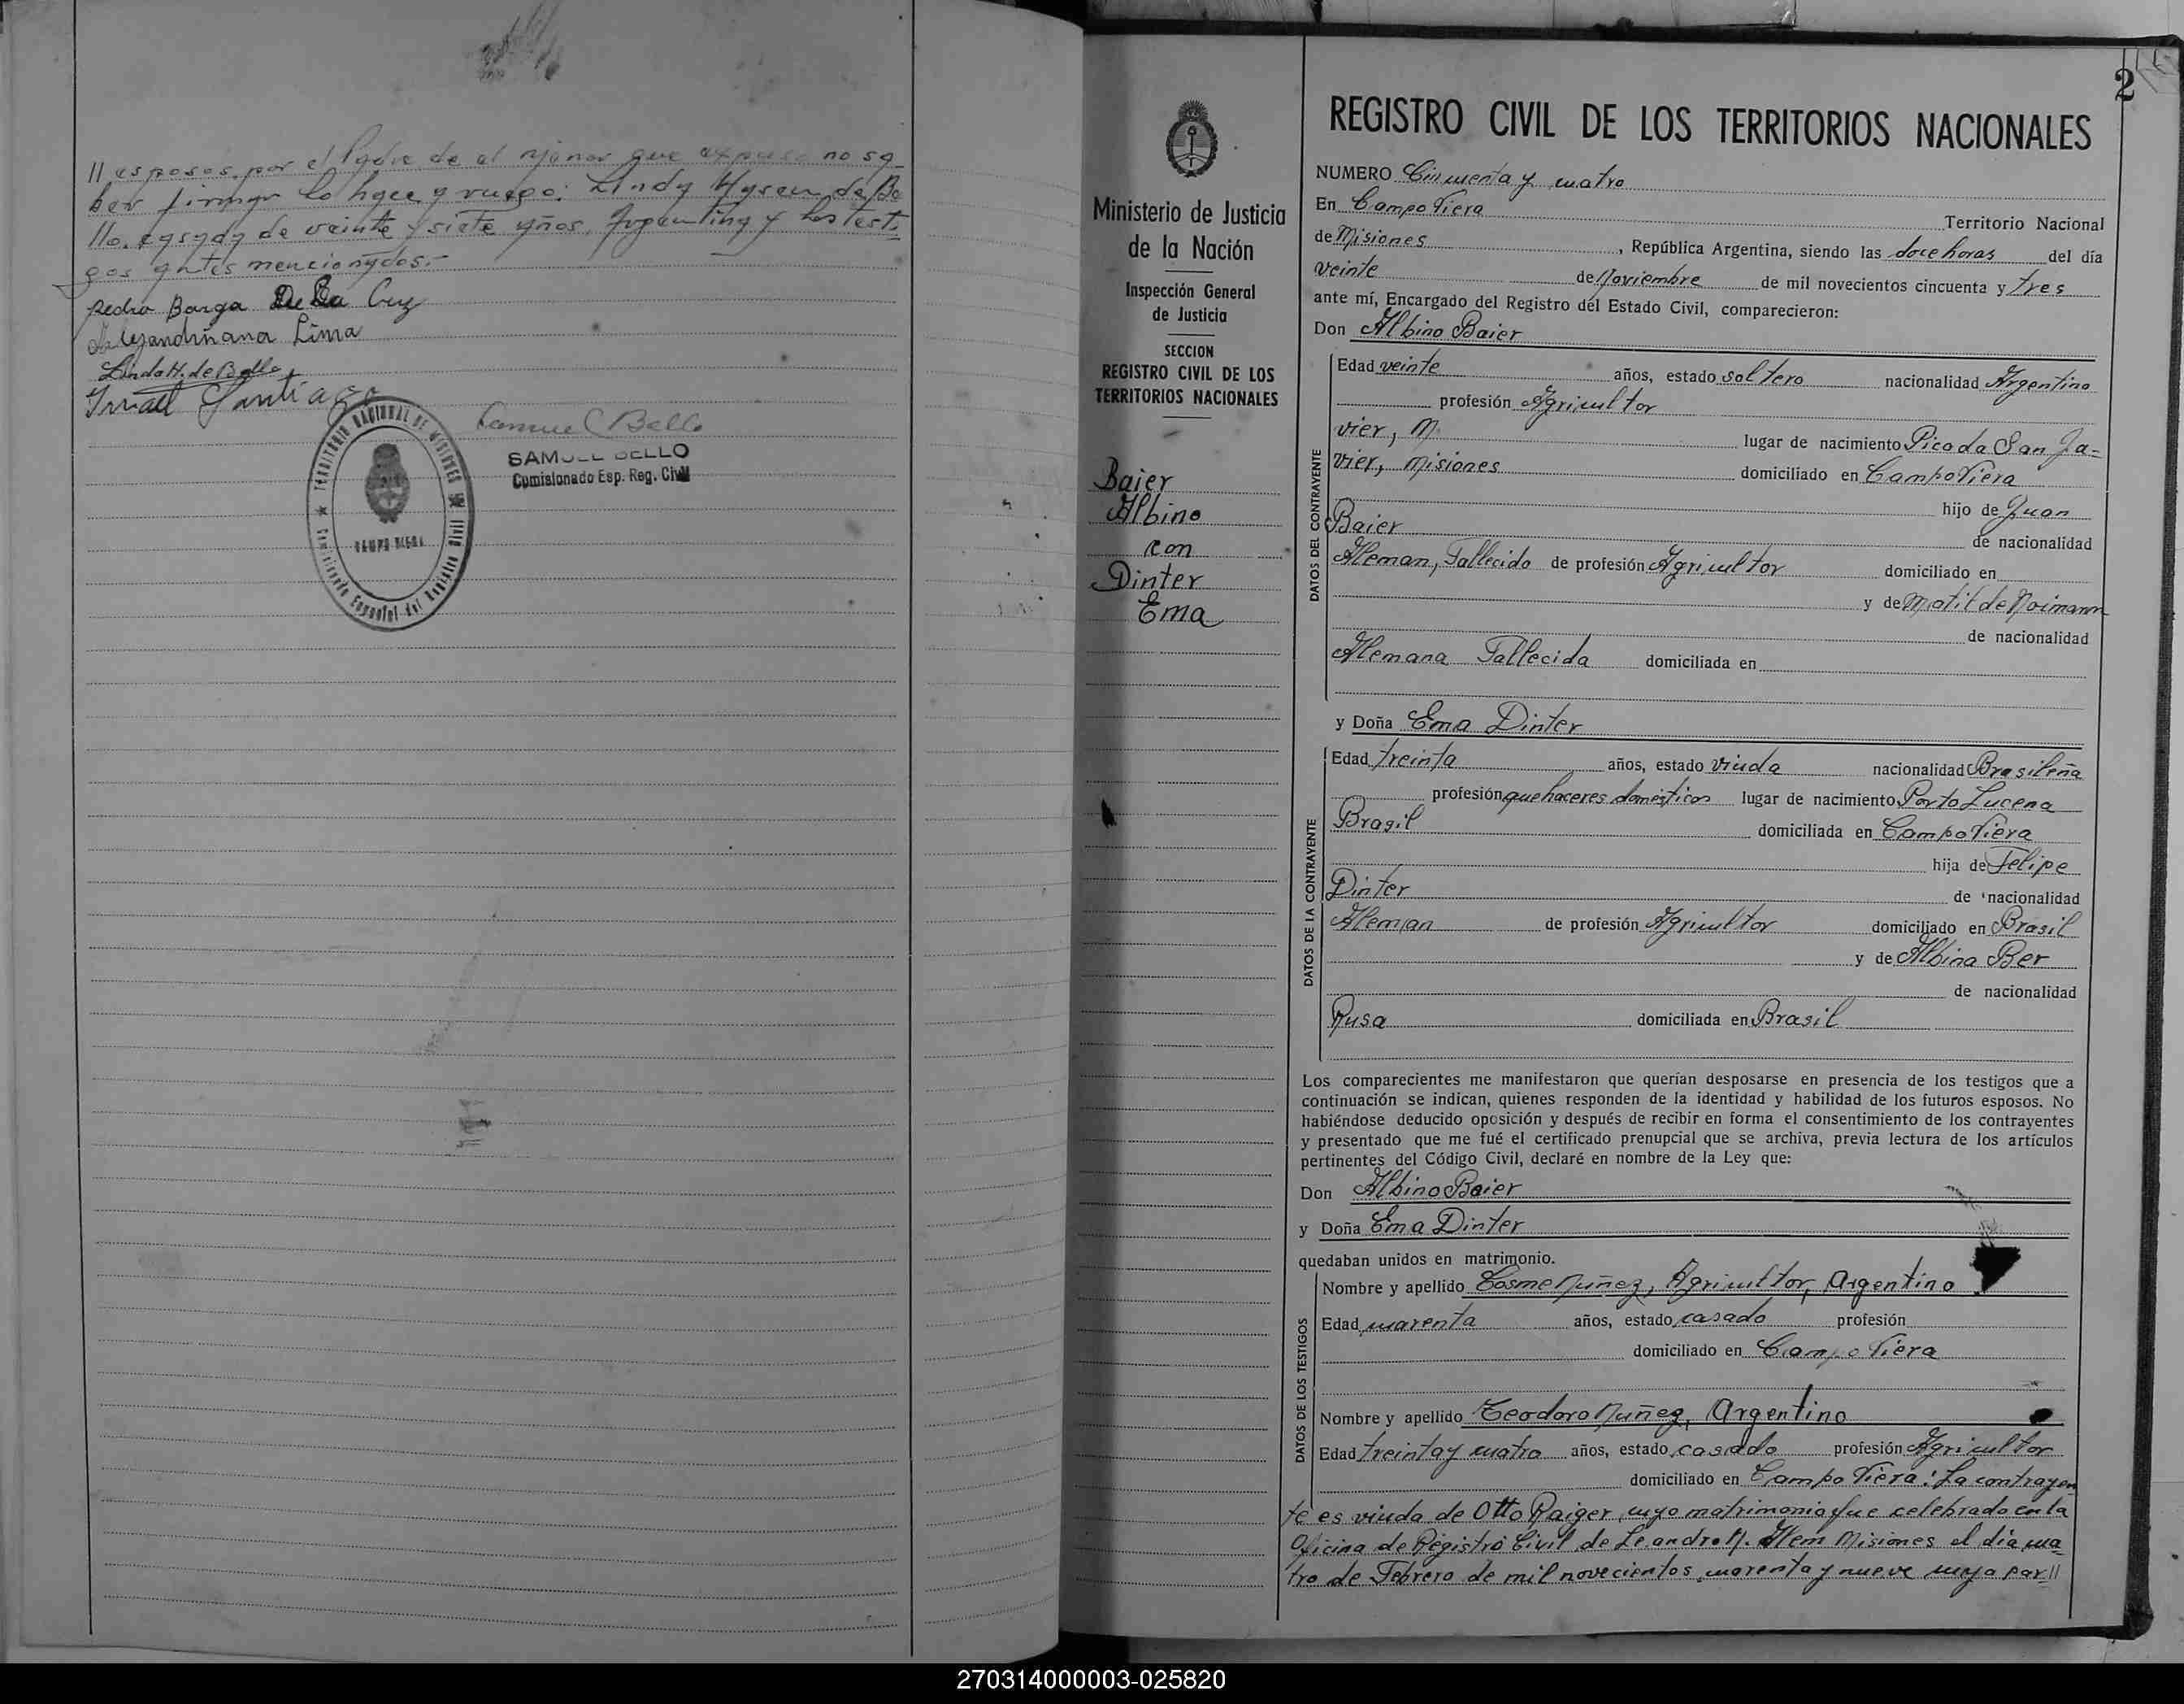 // esposos, por el Padre de el menor que expuso no sa-
ber firmar lo hace a ruego: Linda Hysen de Be
llo, casada de veinte y siete años, Argentina y los testi
gos antes mencionados.-
Pedro Barga De La Cruz
Alejandriñana Lima
Linda H. de Bello
Ismael Santiago
Samuel Bello
SAMUEL BELLO
Comisionado Esp. Reg. Civil
TERRITORIO NACIONAL DE MISIONES
CAMPO VIERA
Comisionado Especial del Registro Civil
2
Ministerio de Justicia
de la Nación
Inspección General
de Justicia
SECCION
REGISTRO CIVIL DE LOS
TERRITORIOS NACIONALES
Baier
Albino
con
Dinter
Ema
REGISTRO CIVIL DE LOS TERRITORIOS NACIONALES
NUMERO Cincuenta y cuatro
En Campo Viera Territorio Nacional
de Misiones, República Argentina, siendo las doce horas del día
veinte de Noviembre de mil novecientos cincuenta y tres
ante mí, Encargado del Registro del Estado Civil, comparecieron:
Don Albino Baier
DATOS DEL CONTRAYENTE
Edad veinte años, estado soltero nacionalidad Argentino
profesión Agricultor
vier, M. lugar de nacimiento Picada San Ja-
vier, Misiones domiciliado en Campo Viera
hijo de Juan
Baier de nacionalidad
Aleman, Fallecido de profesión Agricultor domiciliado en
y de Matilde Noimann
de nacionalidad
Alemana Fallecida domiciliada en
y Doña Ema Dinter
DATOS DE LA CONTRAYENTE
Edad treinta años, estado viuda nacionalidad Brasileña
profesión quehaceres domésticos lugar de nacimiento Porto Lucena
Brasil domiciliada en Campo Viera
hija de Felipe
Dinter de nacionalidad
Aleman de profesión Agricultor domiciliado en Brasil
y de Albina Ber
de nacionalidad
Rusa domiciliada en Brasil
Los comparecientes me manifestaron que querían desposarse en presencia de los testigos que a
continuación se indican, quienes responden de la identidad y habilidad de los futuros esposos. No
habiéndose deducido oposición y después de recibir en forma el consentimiento de los contrayentes
y presentado que me fué el certificado prenupcial que se archiva, previa lectura de los artículos
pertinentes del Código Civil, declaré en nombre de la Ley que:
Don Albino Baier
y Doña Ema Dinter
quedaban unidos en matrimonio.
DATOS DE LOS TESTIGOS
Nombre y apellido Cosme Nuñez, Agricultor, Argentino
Edad cuarenta años, estado casado profesión
domiciliado en Campo Viera
Nombre y apellido Teodoro Nuñez, Argentino
Edad treinta y cuatro años, estado casado profesión Agricultor
domiciliado en Campo Viera: La contrayen
te es viuda de Otto Raiger, cuyo matrimonio fue celebrado en la
Oficina de Registro Civil de Leandro N. Alem Misiones el día cua
tro de Febrero de mil novecientos cuarenta y nueve cuya par//
270314000003-025820